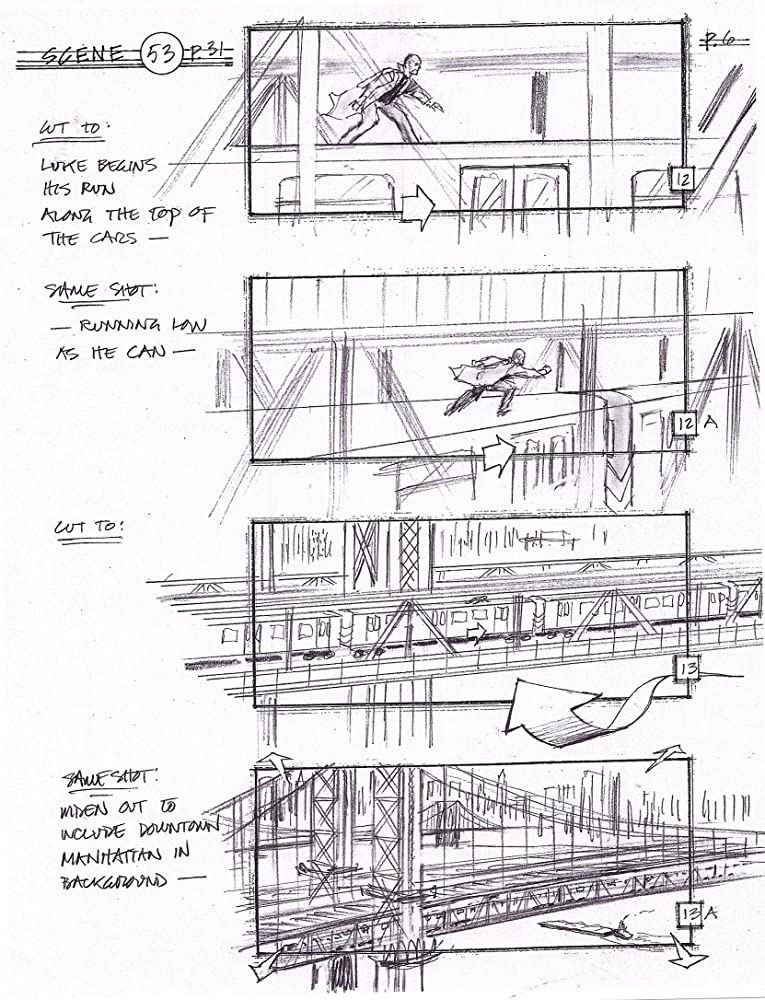 SCENE 53 P.31
P.6
CUT TO:
LUKE BEGINS
HIS RUN
ALONG THE TOP OF
THE CARS —
12
SAME SHOT:
— RUNNING LOW
AS HE CAN —
12 A
CUT TO:
13
SAME SHOT:
WIDEN OUT TO
INCLUDE DOWNTOWN
MANHATTAN IN
BACKGROUND —
13 A